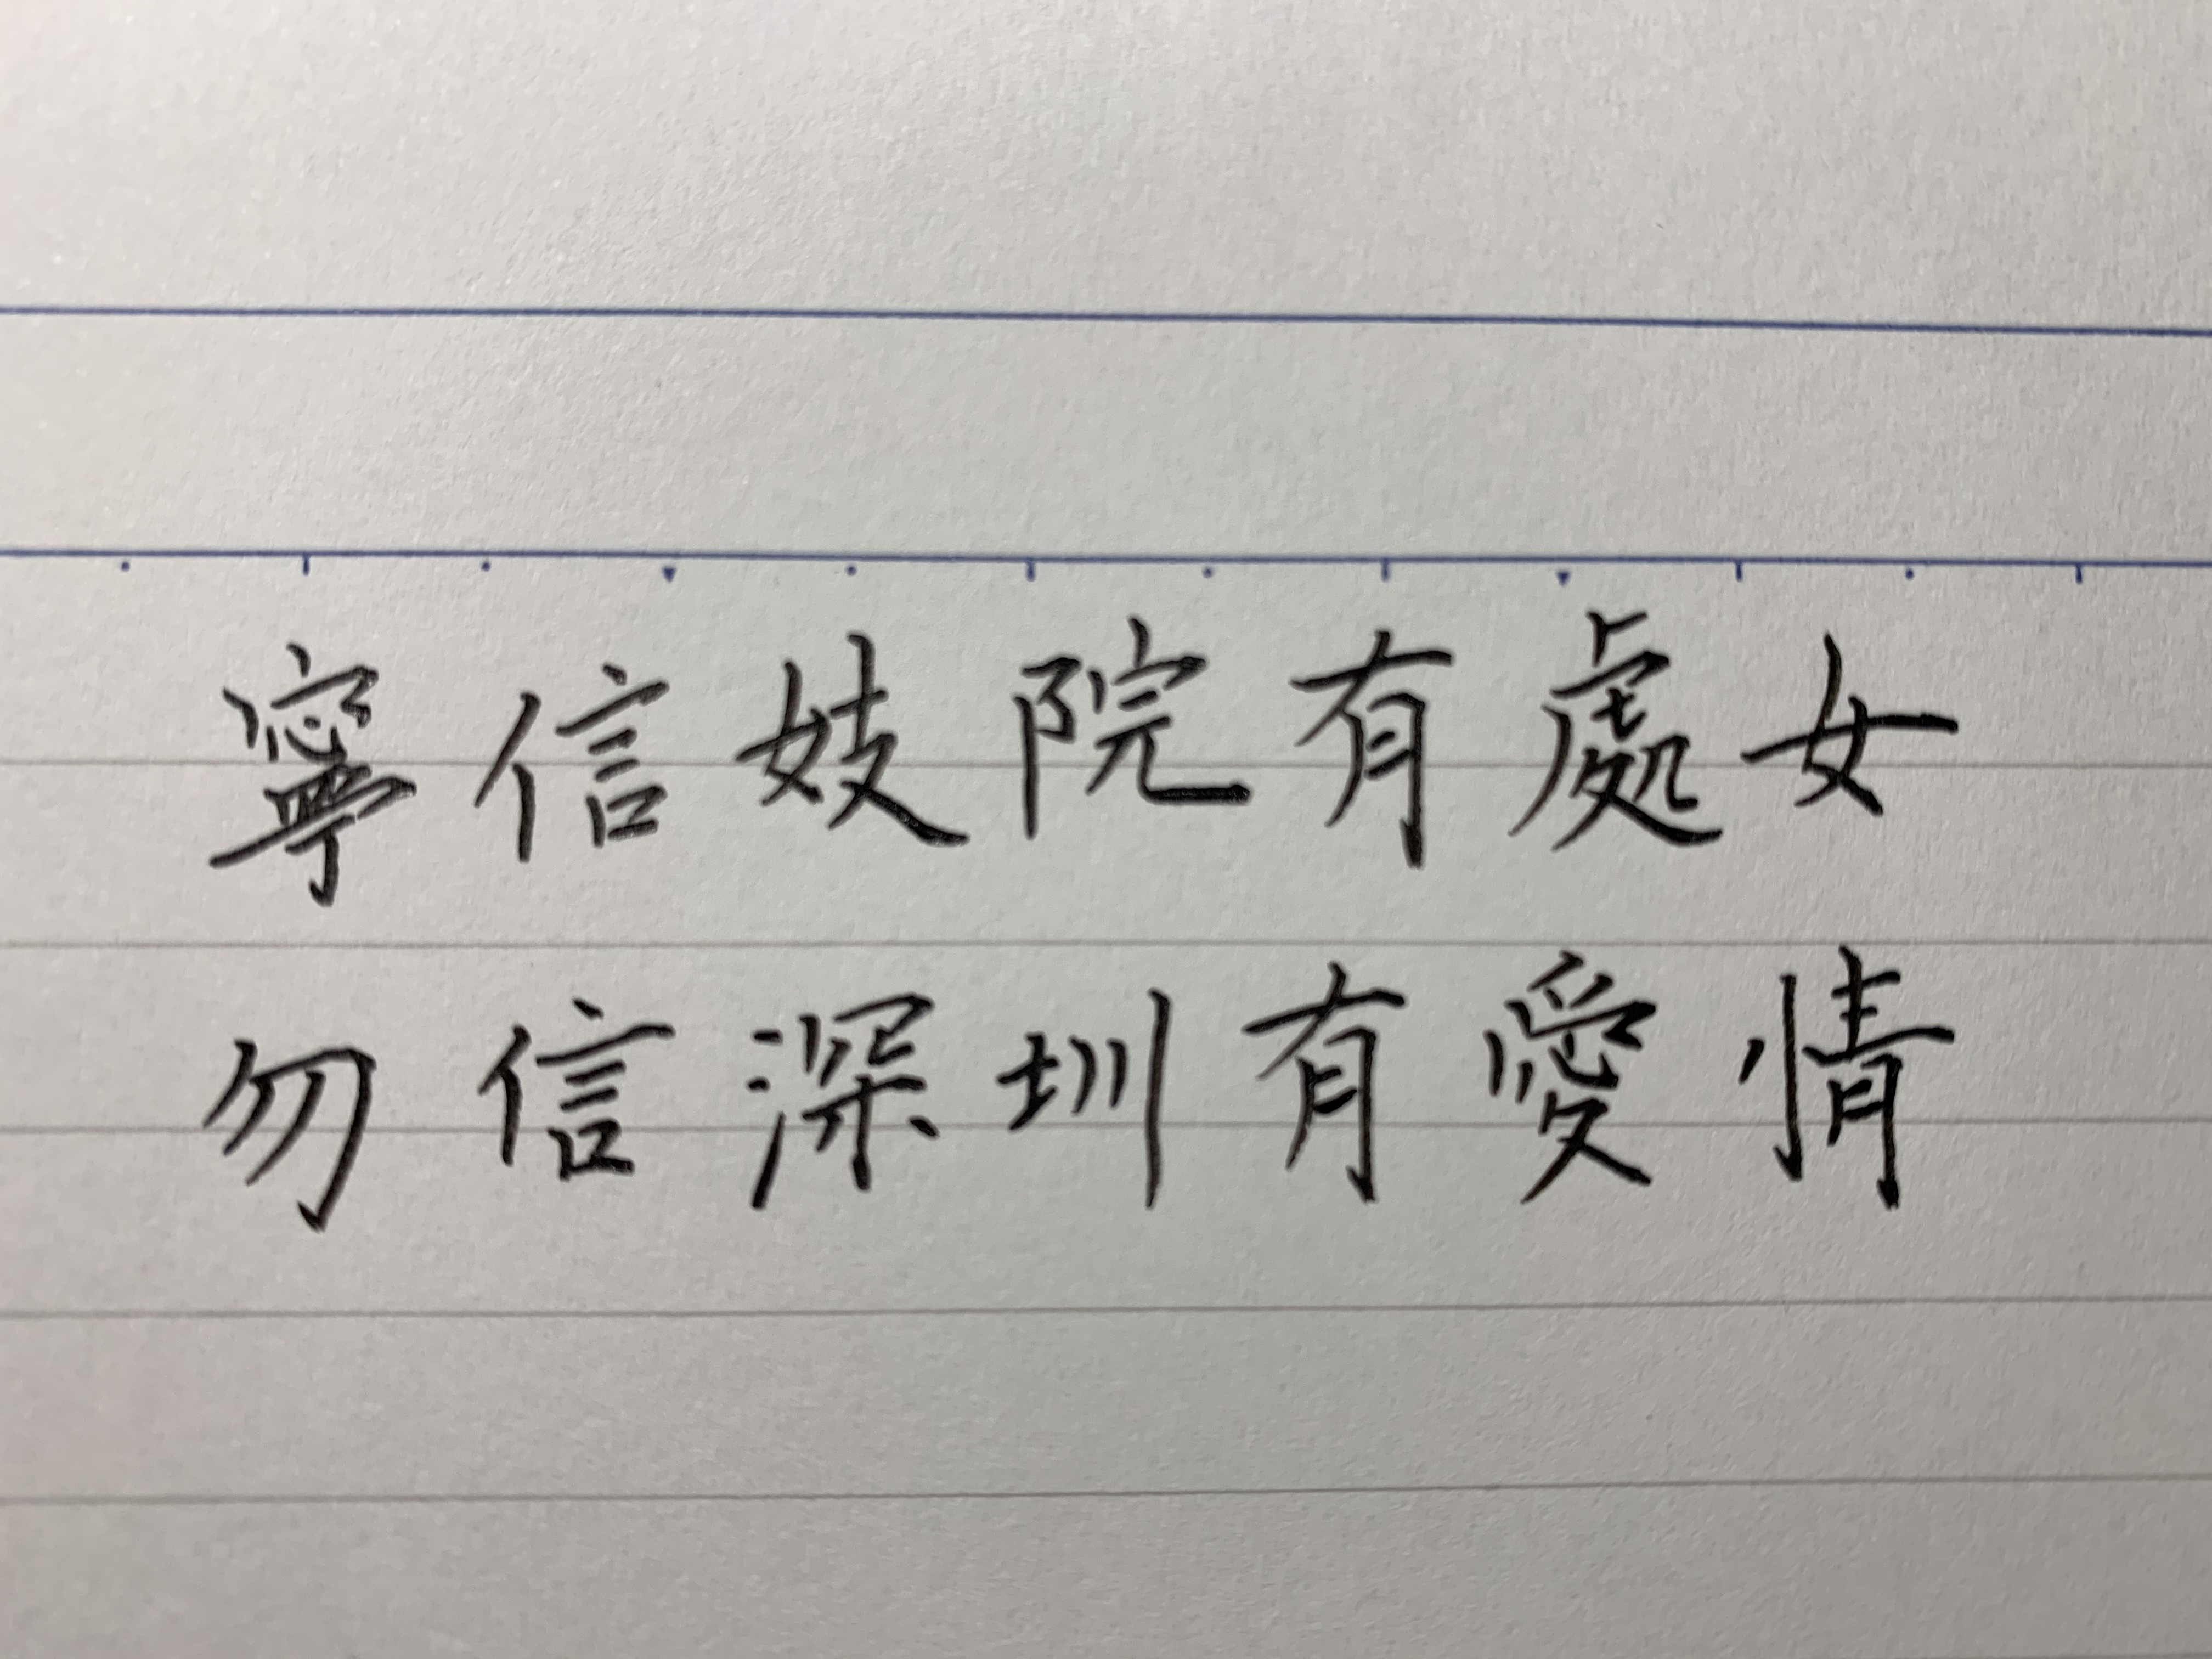 寧信妓院有處女
勿信深圳有愛情